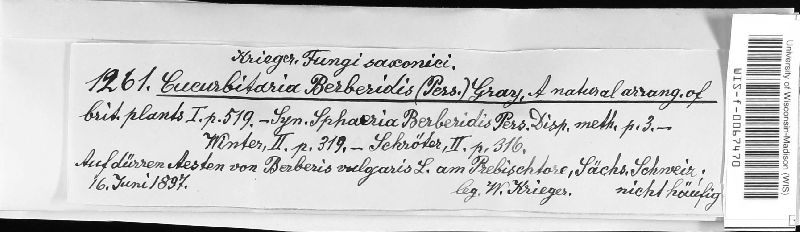 Krieger, Fungi saxonici.
1261. Cucurbitaria Berberidis (Pers.) Gray, A natural arrang. of
brit. plants I. p. 519. – Syn. Sphaeria Berberidis Pers. Disp. meth. p. 3. –
Winter, II. p. 319. – Schröter, II. p. 316.
Auf dürren Aesten von Berberis vulgaris L. am Prebischtore, Sächs. Schweiz;
16. Juni 1897. leg. W. Krieger. nicht häufig
University of Wisconsin-Madison (WIS)
WIS-f-0067470